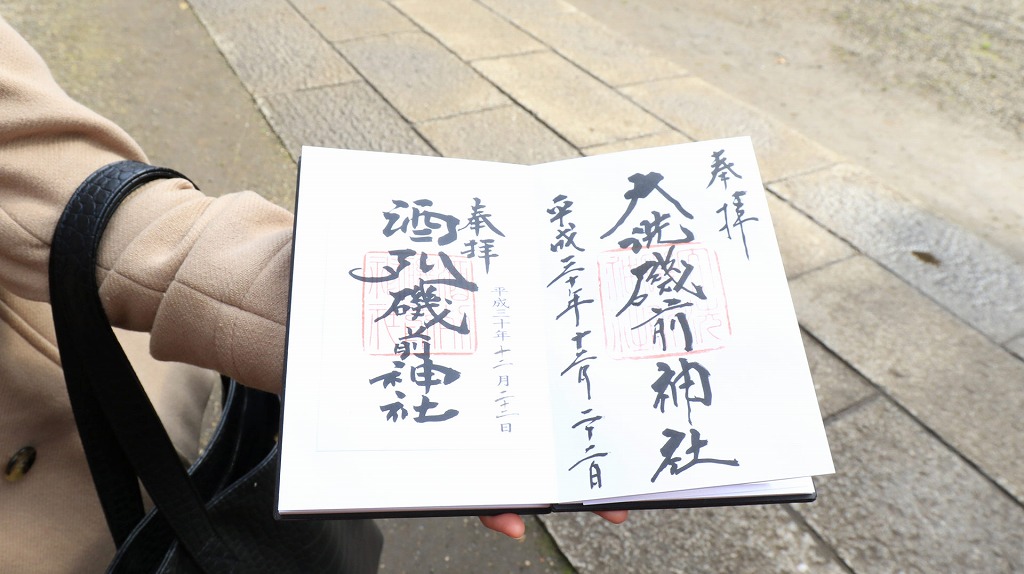 奉拝
大洗磯前神社
平成三十年十二月二十二日
奉拝
酒列磯前神社
平成三十年十二月二十二日